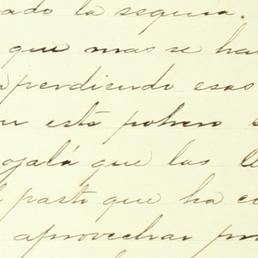 ado la seguia.
que mas se ha
perdiendo esas
este potrero
ojalá que las
pasto que ha
aprovechar